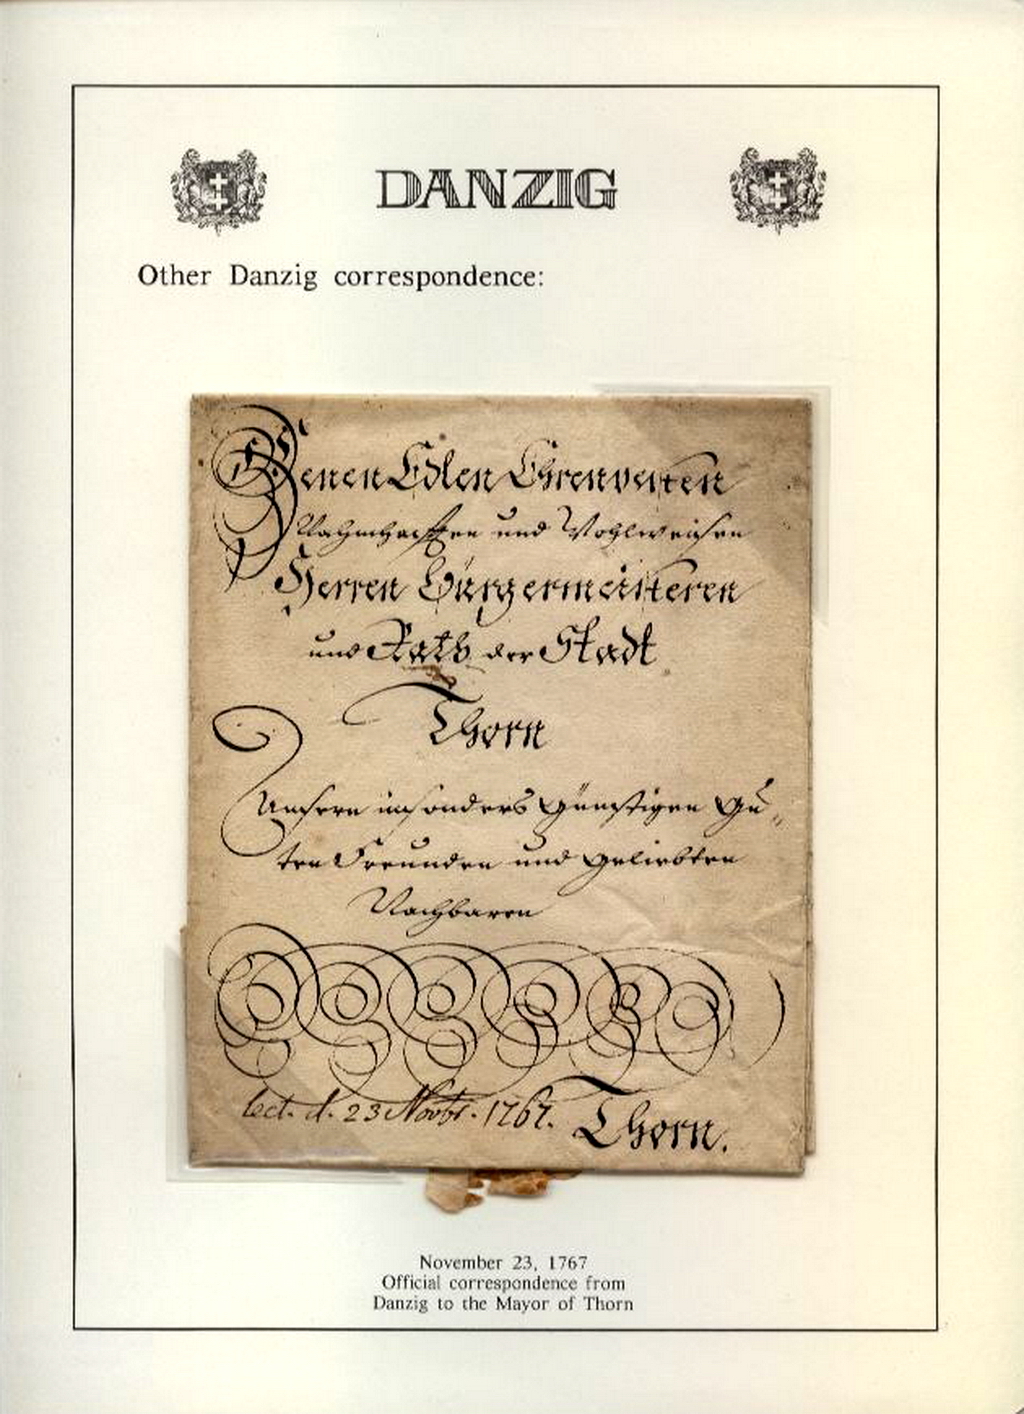 DANZIG
Other Danzig correspondence:
Denen Edlen Ehrenvesten
Nahmhafften und Wohlweisen
Herren Bürgermeisteren
und Rath der Stadt
Thorn
Unsern insonders günstigen gu„
ten Freunden und geliebten
Nachbaren
lect. d. 23 Novbr. 1767. Thorn.
November 23, 1767
Official correspondence from
Danzig to the Mayor of Thorn